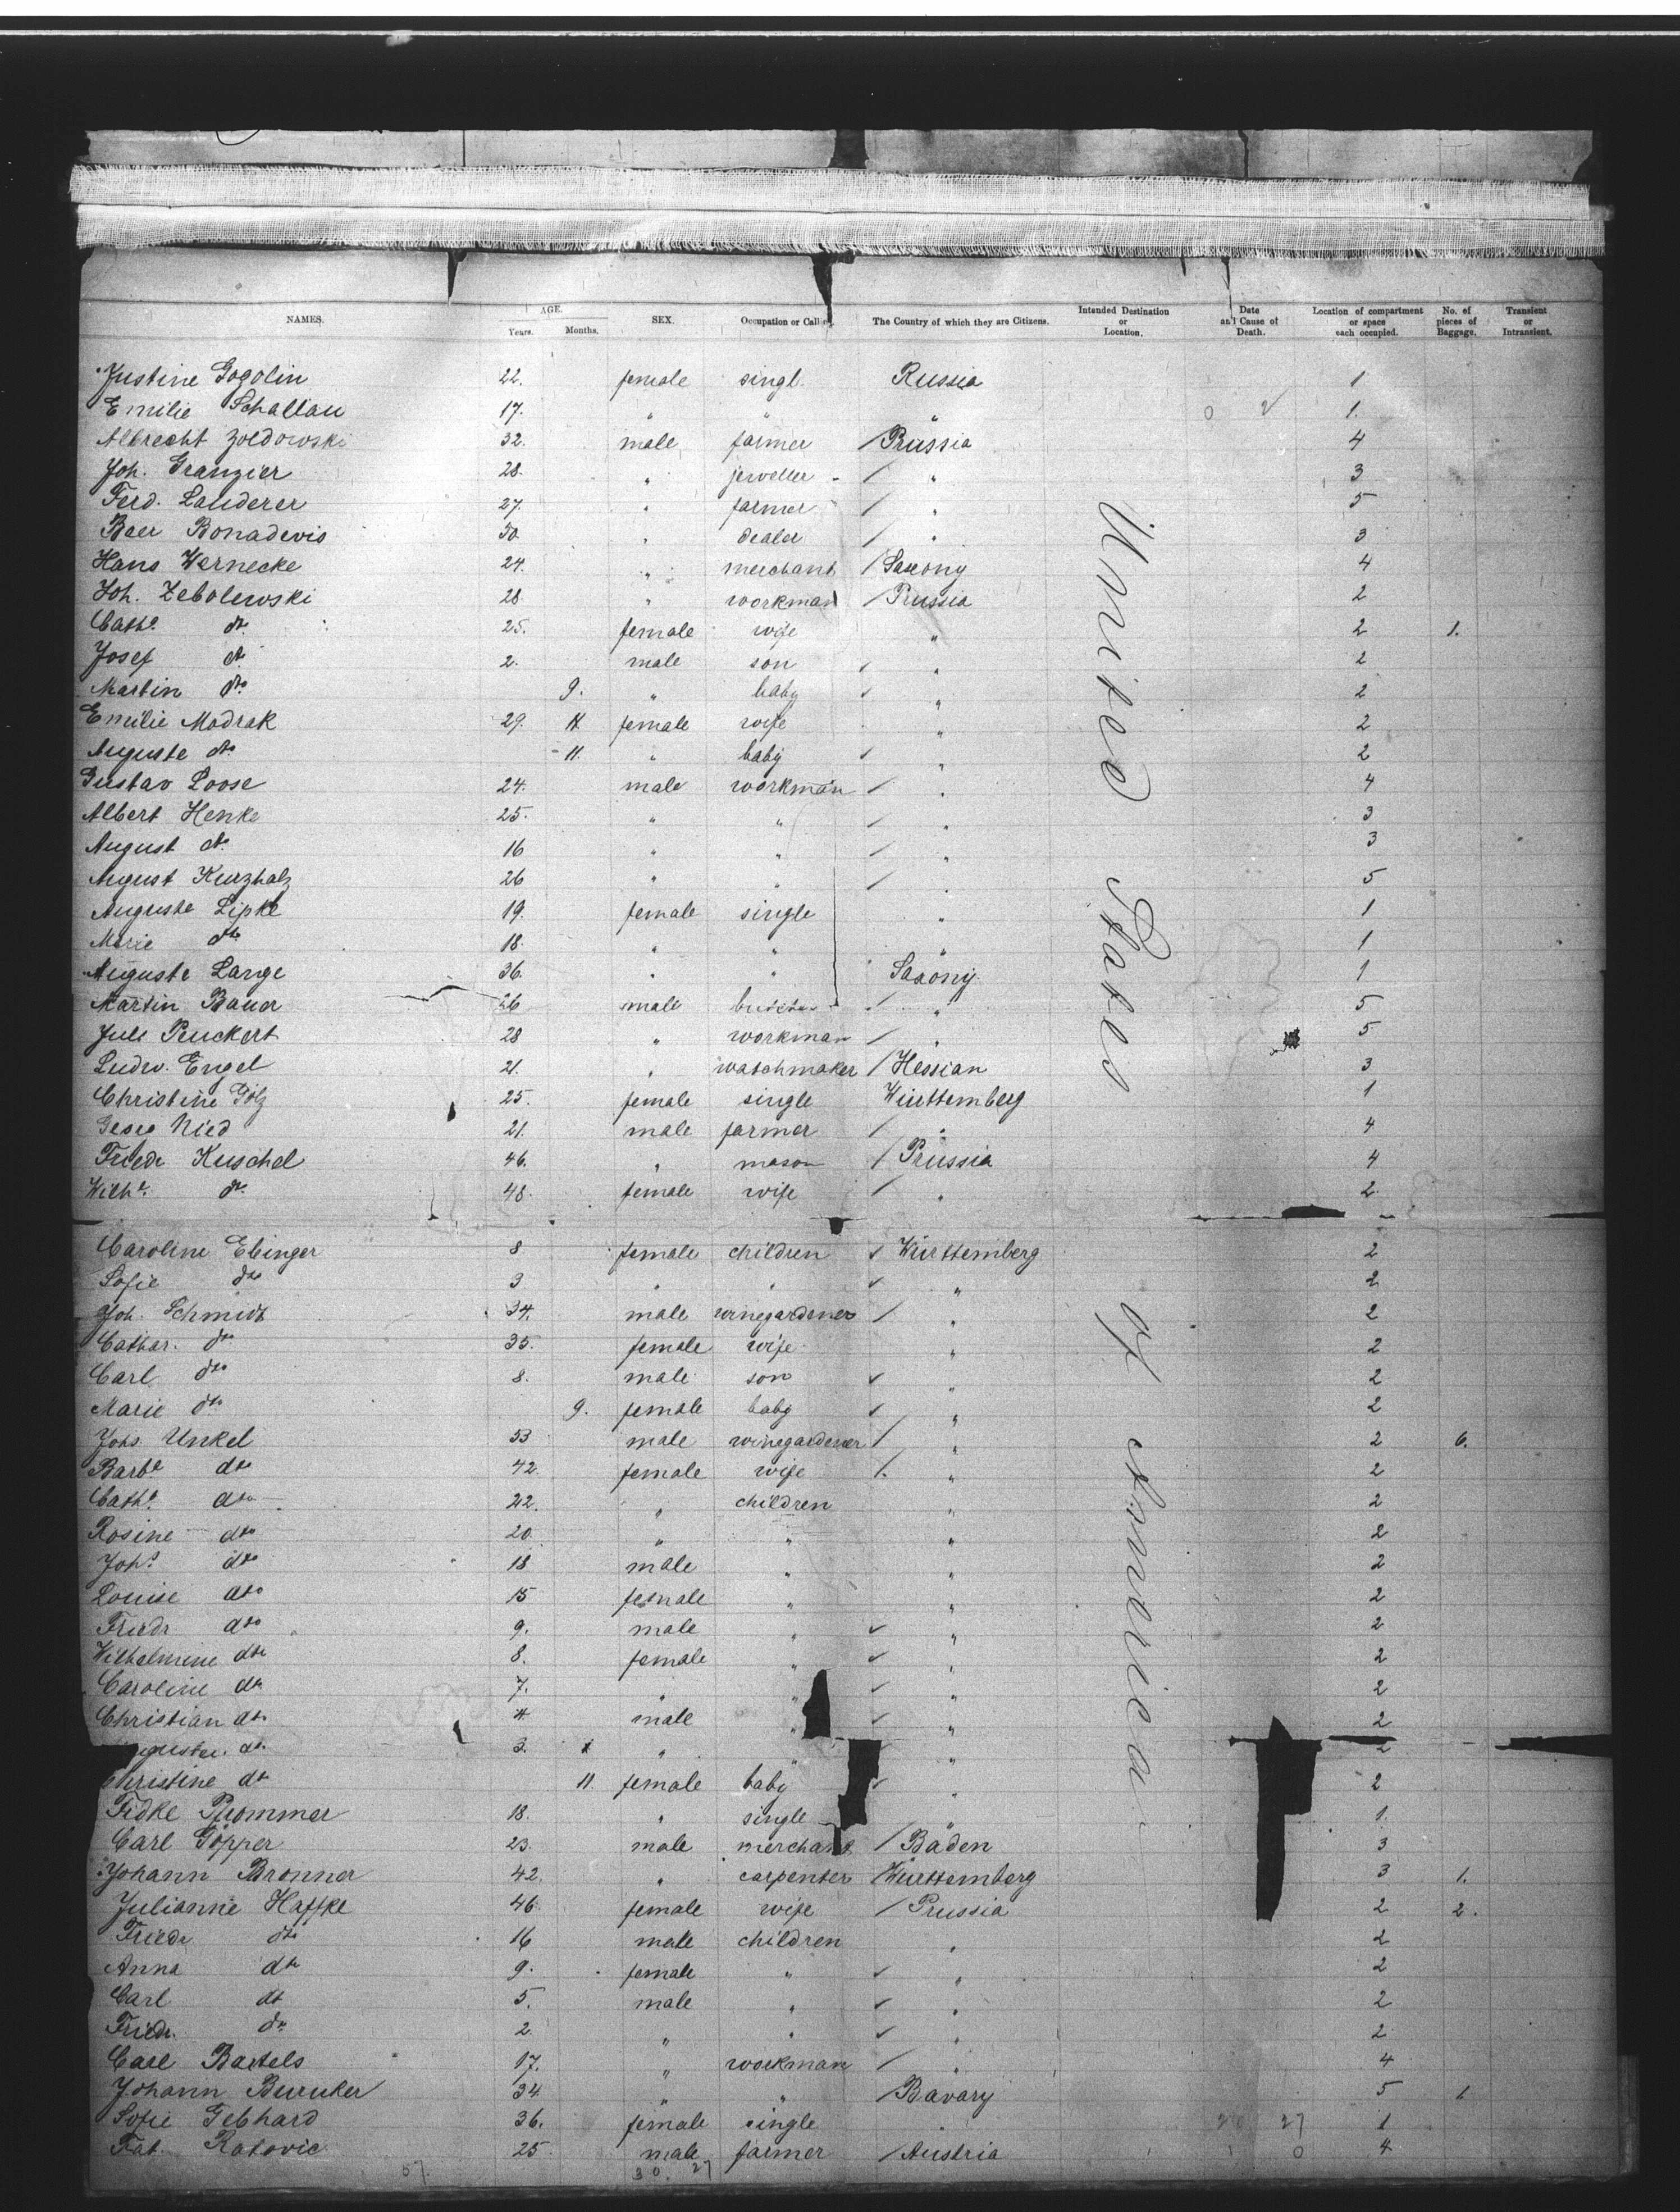 NAMES. AGE. Years. Months. SEX. Occupation or Calling. The Country of which they are Citizens. Intended Destination or Location. Date and Cause of Death. Location of compartment or space each occupied. No. of pieces of Baggage. Transient or Intransient.
Justine Gogolin 22. female singl. Russia 1
Emilie Schallau 17. " " " 1.
Albrecht Zoldowski 32. male farmer / Prussia 4
Joh. Granzier 28. " jeweller / " 3
Ferd. Lauderer 27. " farmer / " 5
Baer Bonadevis 30. " dealer / " 3
Hans Wernecke 24. " merchant / Saxony 4
Joh. Zebolewski 28 " workman / Prussia 2
Cathe. do 25. female wife " 2 1.
Josef do 2. male son ✓ " 2
Martin do 9. " baby ✓ " 2
Emilie Modrak 29. female wife " 2
Auguste do 11. " baby ✓ " 2
Gustav Loose 24. male workman / " 4
Albert Henke 25. " " / " 3
August do 16 " " / " 3
August Kurzhalz 26 " " / " 5
Auguste Lipke 19. female single " 1
Marie do 18. " " " 1
Auguste Lange 36. " " Saxony 1
Martin Bauer 26 male butcher / " 5
Jule Peuckert 28 " workman / " 5
Ludw. Engel 21. " watchmaker / Hessian 3
Christine Gölz 25. female single Württemberg 1
Georg Nied 21. male farmer / " 4
Friedr Kuschel 46. " mason / Prussia 4
Wilhe. do 48. female wife / " 2
Caroline Ebinger 8 female children ✓ Württemberg 2
Sofie do 3 " " ✓ " 2
Joh. Schmidt 34. male winegardener / " 2
Cathar. do 35. female wife " 2
Carl do 8. male son ✓ " 2
Marie do 9. female baby ✓ " 2
Johs Unkel 53 male winegardener / " 2 6.
Barbe do 42. female wife / " 2
Cathe. do 22. " children " 2
Rosine do 20. " " " 2
Johs do 18 male " " 2
Louise do 15 female " " 2
Friedr do 9. male " ✓ " 2
Wilhelmine do 8. female " ✓ " 2
Caroline do 7. " " ✓ " 2
Christian do 4 male " ✓ " 2
do 3. " " " 2
Christine do 11 female baby ✓ " 2
Fidke Prommer 18. " single " 1.
Carl Göpper 23. male merchant / Baden 3
Johann Bronner 42. " carpenter Württemberg 3 1.
Julianne Haffke 46 female wife / Prussia 2 2.
Friedr do 16 male children " 2
Anna do 9. female " ✓ " 2
Carl do 5. male " ✓ " 2
Friedr. do 2. " " ✓ " 2
Carl Bartels 17. " workman / " 4
Johann 34 " " / Bavary 5 1
Sofie Gebhard 36. female single " 1
Ratovic 25 male farmer / Austria 4
United States of America